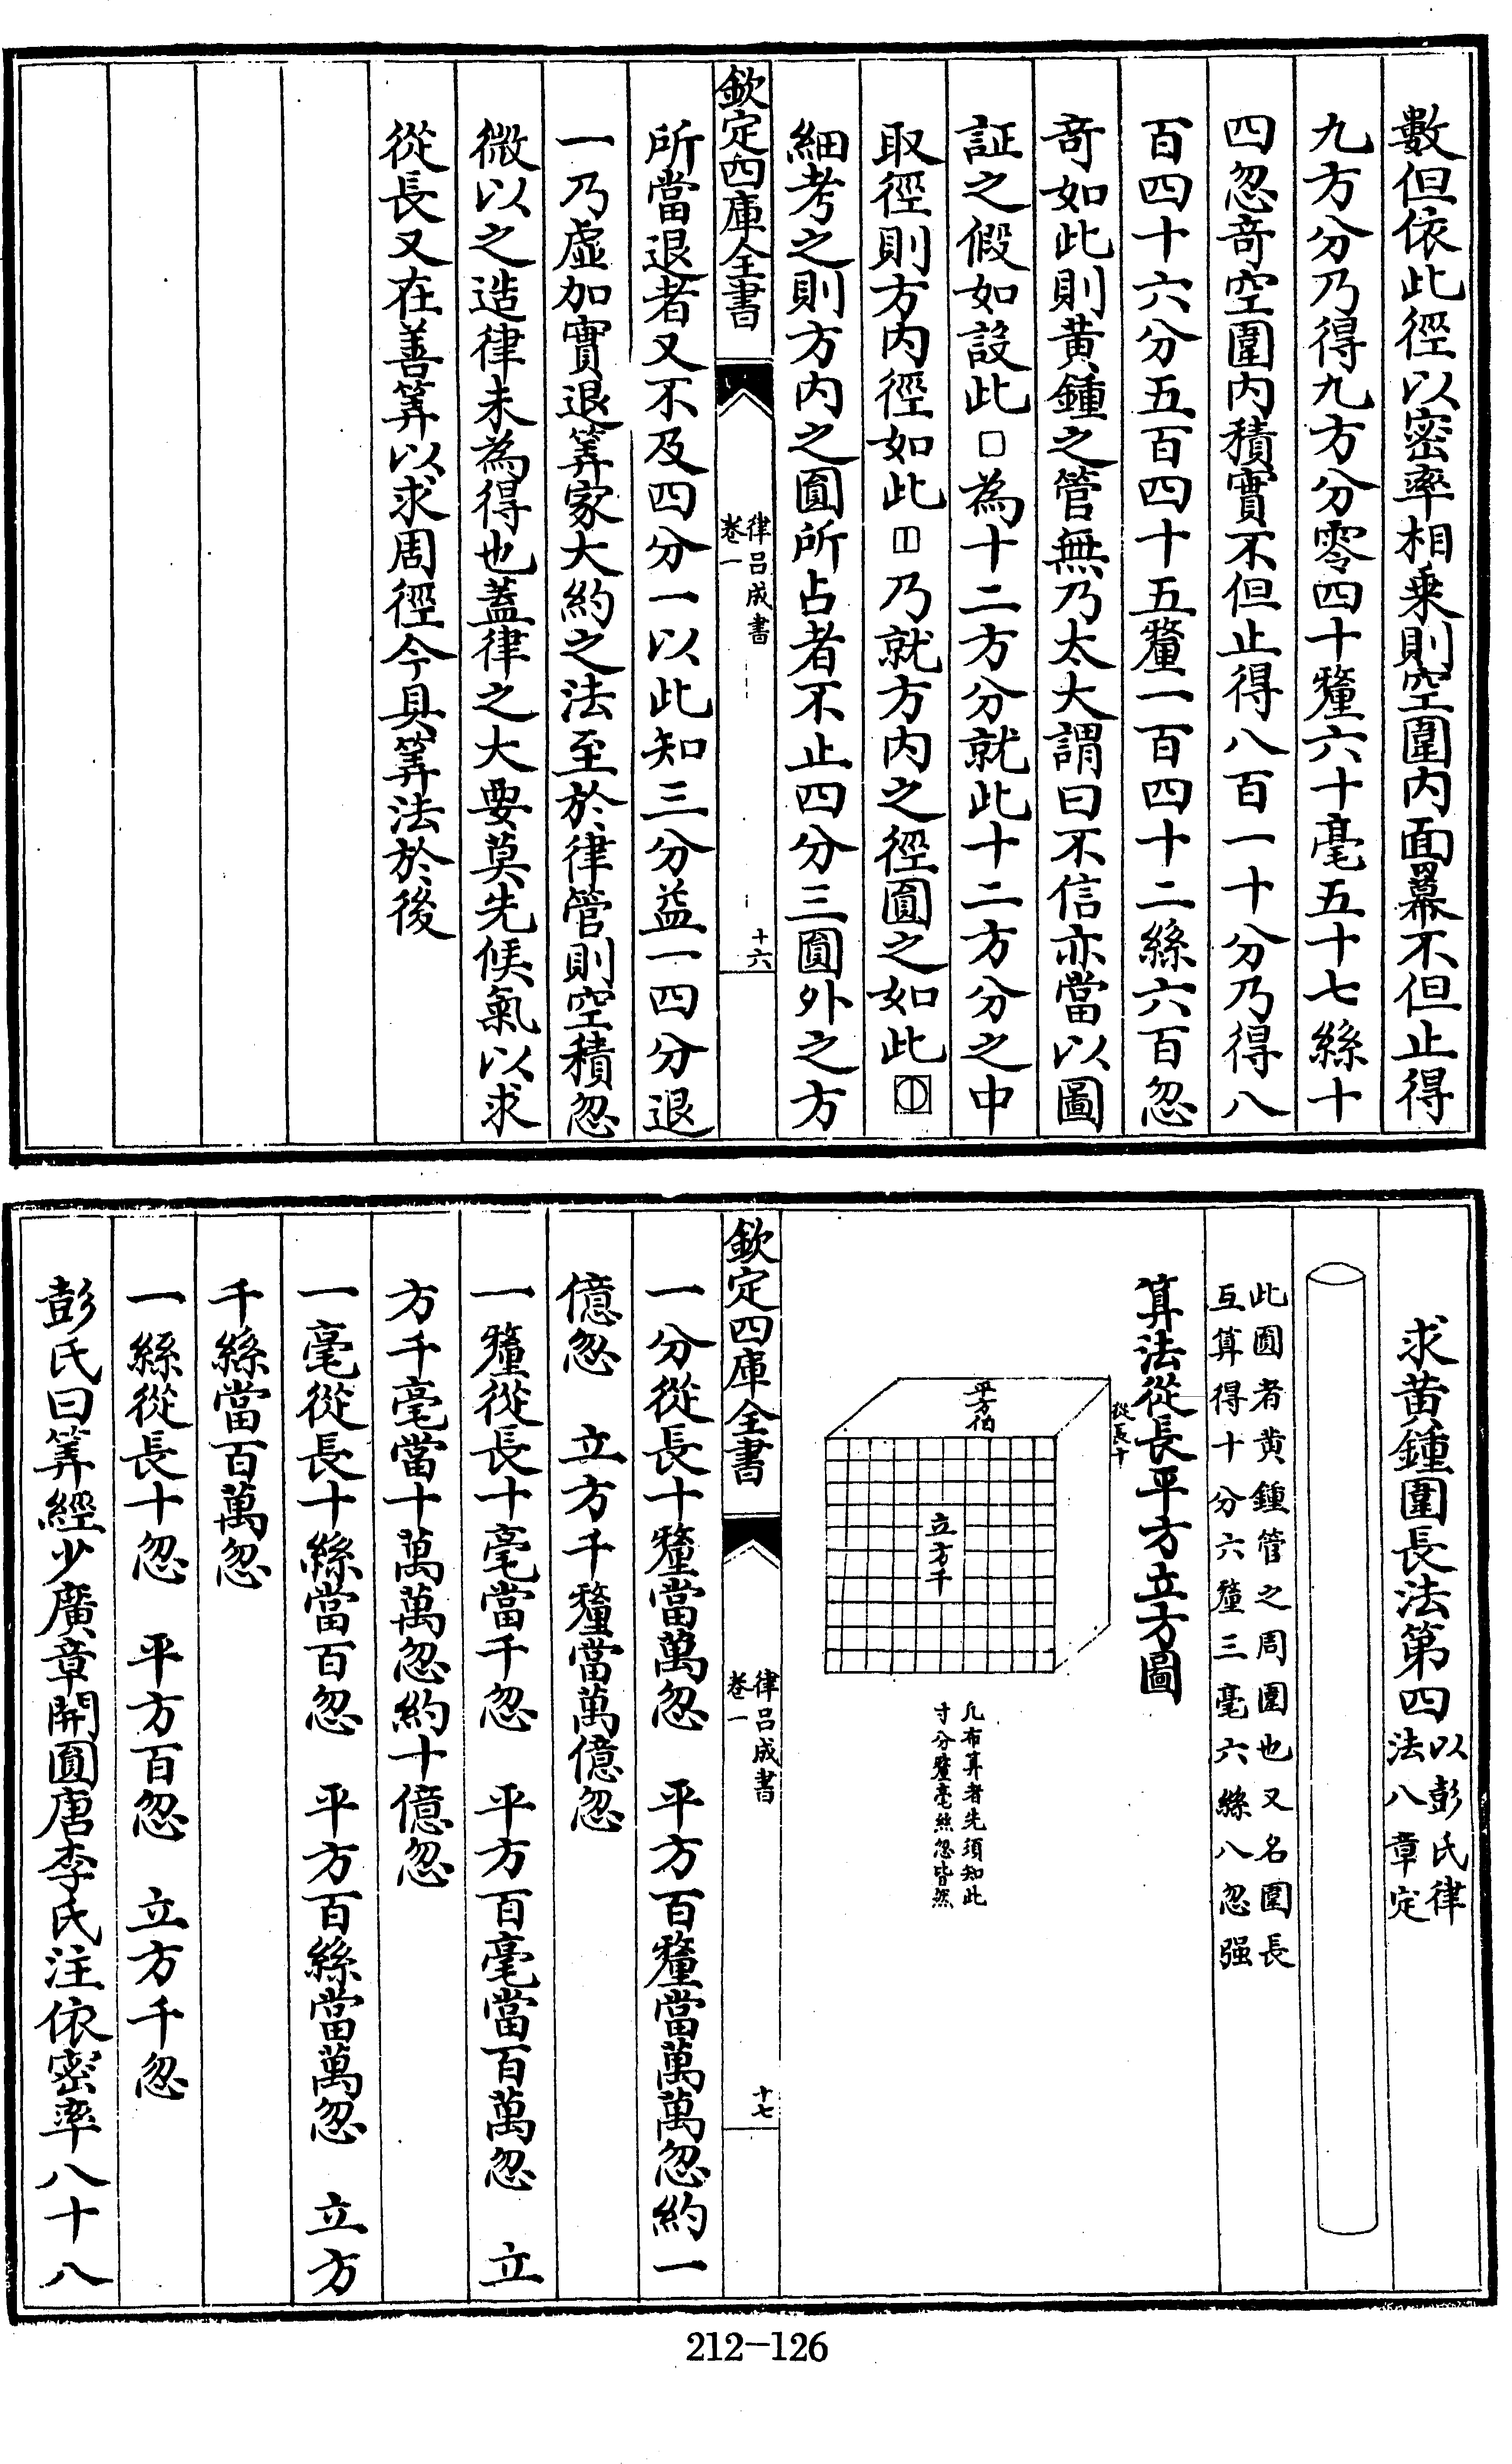 數但依此徑以密率相乗則空圍内面冪不但止得
九方分乃得九方分零四十釐六十毫五十七絲十
四忽竒空圍内積實不但止得八百一十分乃得八
百四十六分五百四十五釐一百四十二絲六百忽
竒如此則黄鍾之管無乃太大謂曰不信亦當以圖
証之假如設此□為十二方分就此十二方分之中
取徑則方内徑如此乃就方内之徑圎之如此
細考之則方内之圎所占者不止四分三圎外之方
欽定四庫全書
律吕成書
卷一
十六
所當退者又不及四分一以此知三分益一四分退
一乃虚加實退筭家大約之法至於律管則空積忽
微以之造律未為得也蓋律之大要莫先候氣以求
從長又在善筭以求周徑今具筭法於後
求黄鍾圍長法第四
以彭氏律
法八章定
此圎者黄鍾管之周圍也又名圍長
互算得十分六釐三毫六絲八忽强
算法從長平方立方圖
從長十
平方伯
立方千
凡布算者先須知此
寸分釐毫絲忽皆然
欽定四庫全書
律吕成書
卷一
十七
一分從長十釐當萬忽　平方百釐當萬萬忽約一
億忽　立方千釐當萬億忽
一釐從長十毫當千忽　平方百毫當百萬忽　立
方千毫當十萬萬忽約十億忽
一毫從長十絲當百忽　平方百絲當萬忽　立方
千絲當百萬忽
一絲從長十忽　平方百忽　立方千忽
彭氏曰筭經少廣章開圎唐李氏注依密率八十八
212-126